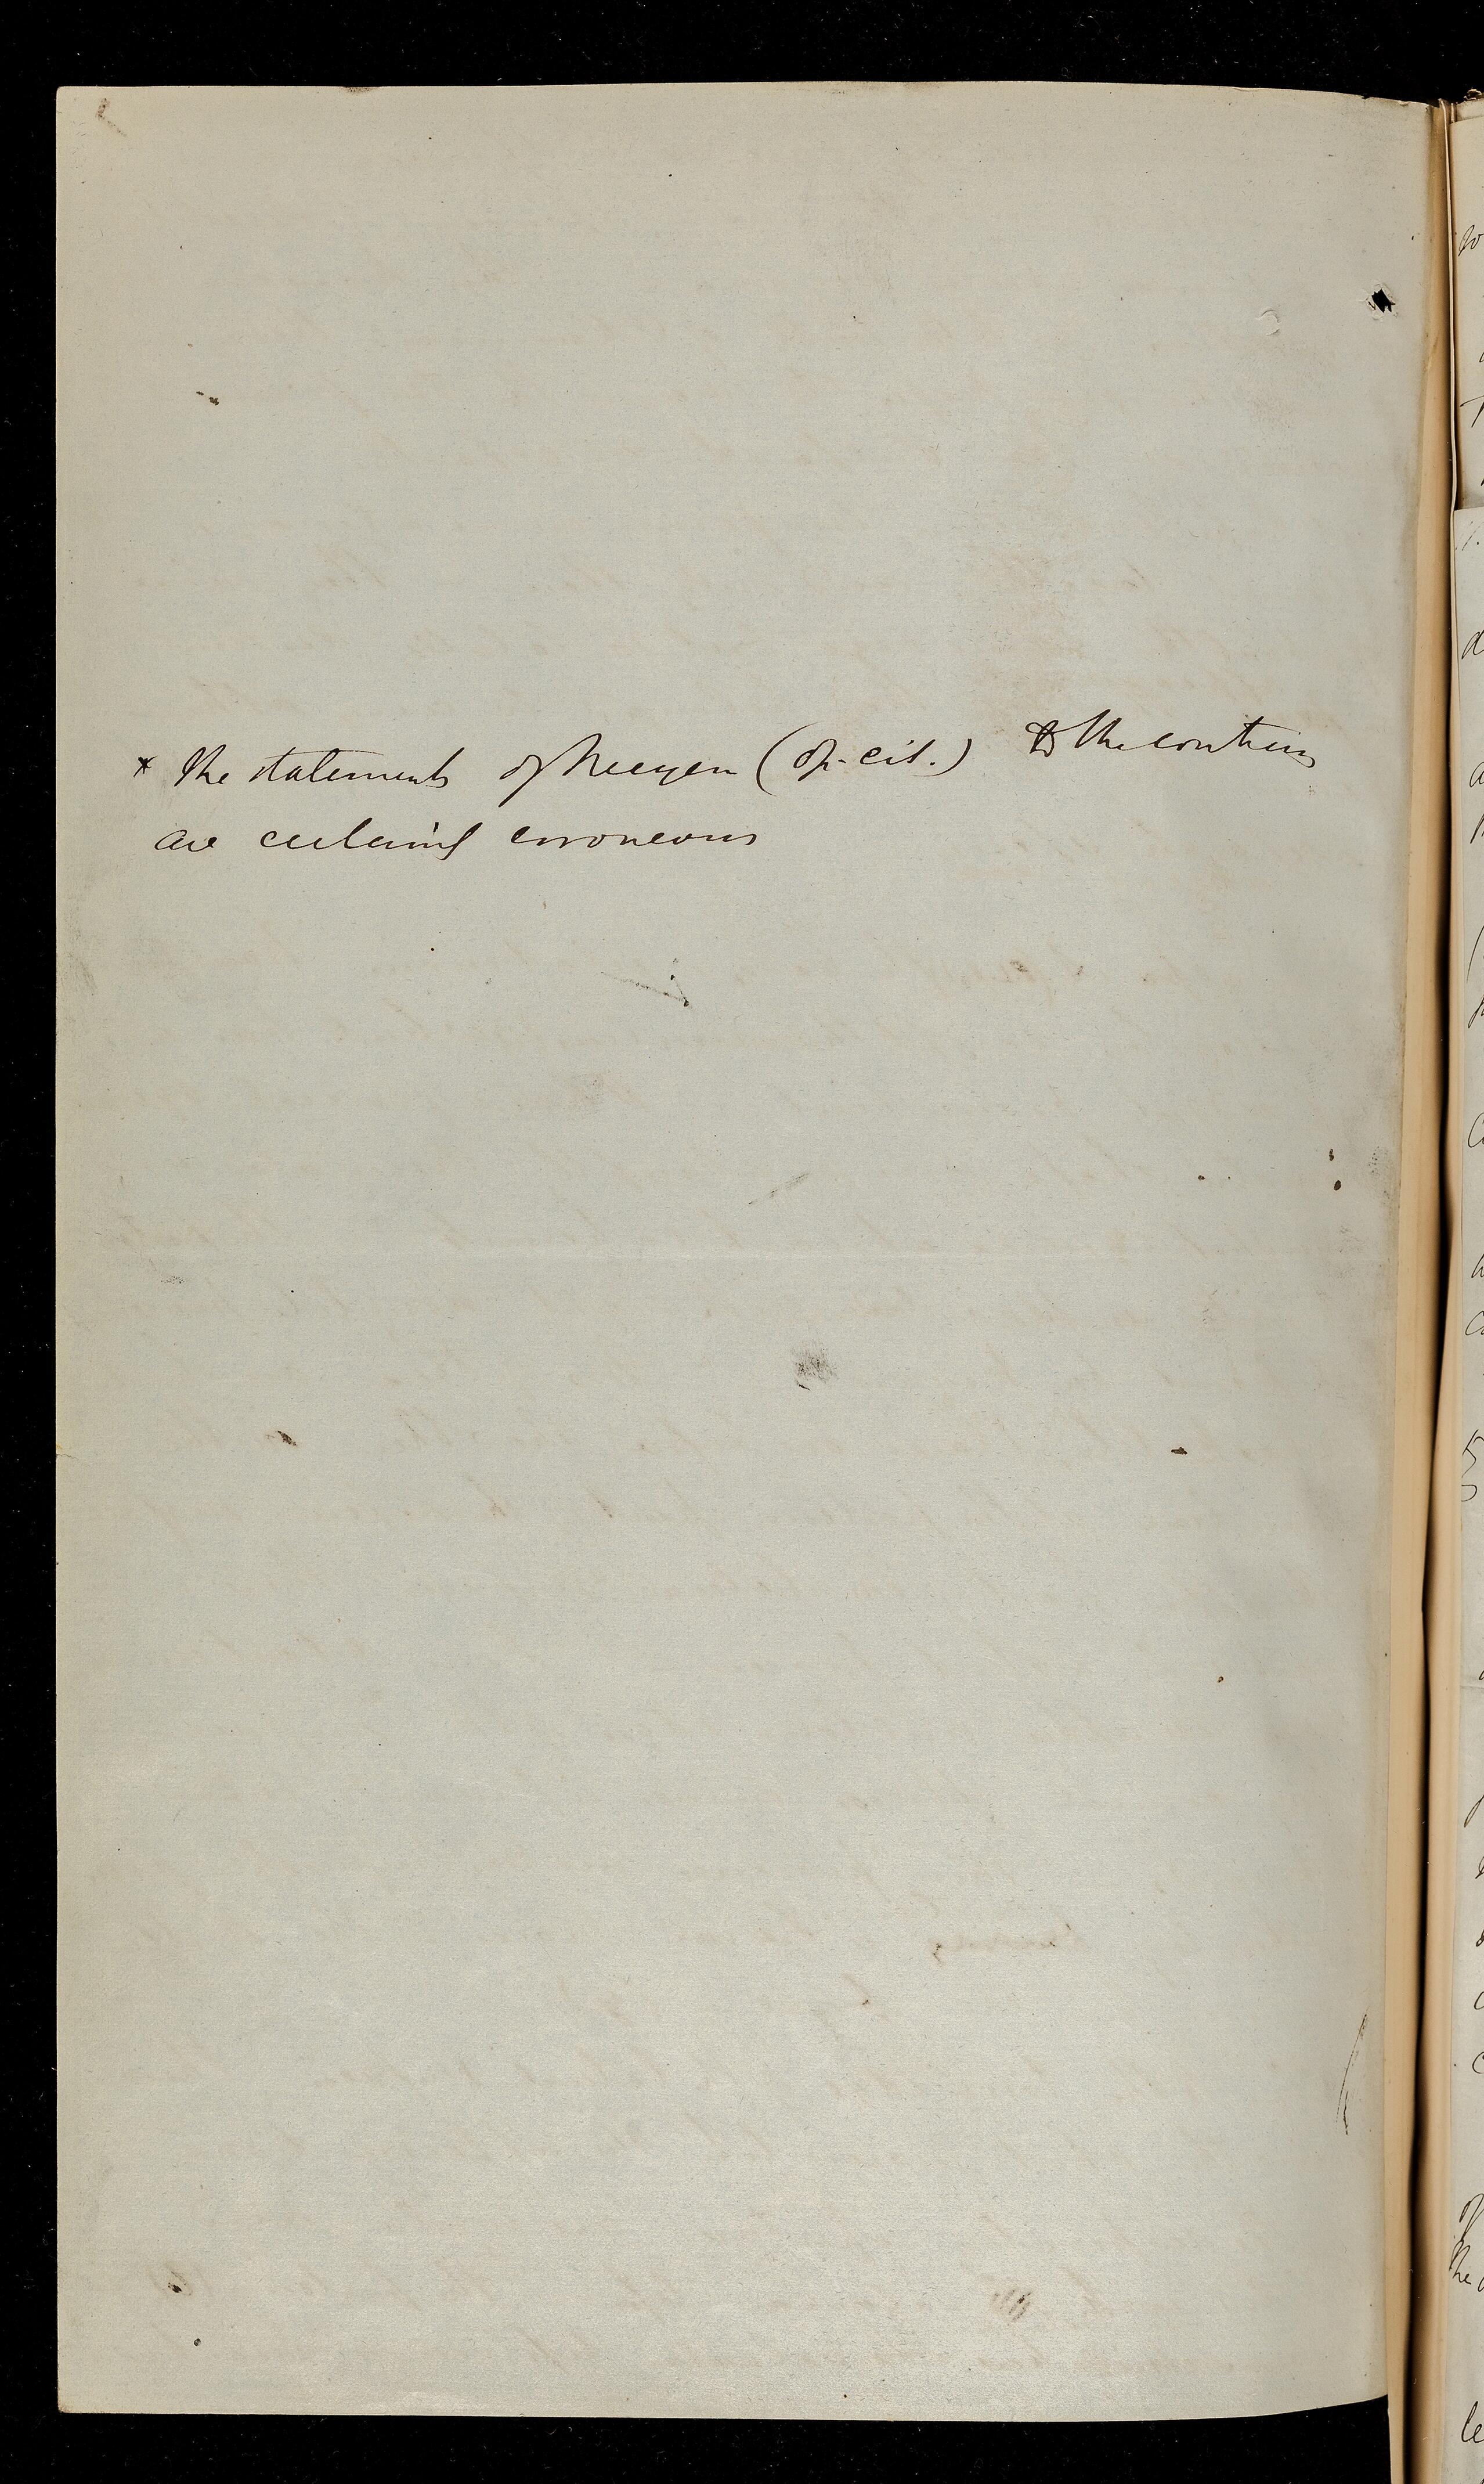 * The statements of Meyen (op. cit.) to the contrary
are certainly erroneous